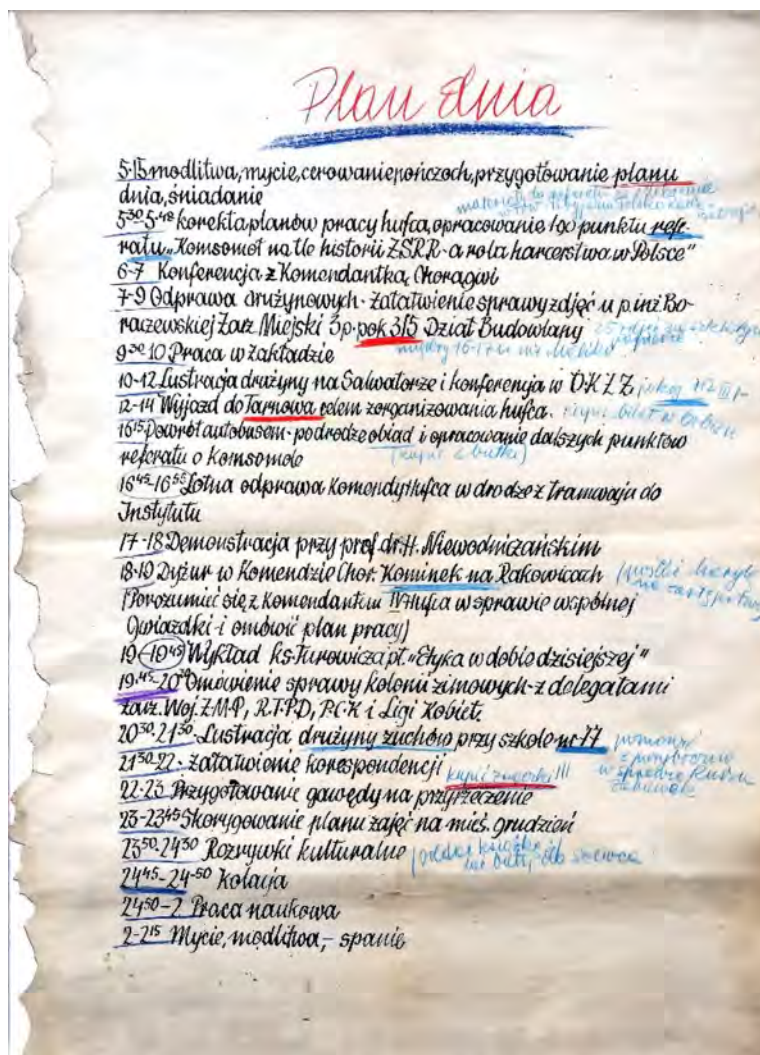 Plan dnia
5.15 modlitwa, mycie, cerowanie pończoch, przygotowanie planu
dnia, śniadanie
5³⁰-5·⁴⁸ korekta planów pracy hufca, opracowanie 1go punktu refe-
ratu „Komsomoł na tle historii ZSRR - a rola harcerstwa w Polsce"
6-7 Konferencja z Komendantką Chorągwi
7-9 Odprawa drużynowych - załatwienie sprawy zdjęć u p. inż. Bo-
raczewskiej Zarz. Miejski 3p. pok 315 Dział Budowlany
9³⁰ 10 Praca w zakładzie
między 16-17
10-12 Lustracja drużyny na Salwatorze i konferencja w O.K.Z.Z. pokój 112 III p.
12-14 Wyjazd do Tarnowa celem zorganizowania hufca. kupić bilet w Orbisie
16¹⁵ Powrót autobusem - po drodze obiad i opracowanie dalszych punktów
(kupić 2 bułki)
referatu o Komsomole
16⁴⁵-16⁵⁵ Lotna odprawa Komendy Hufca w drodze z tramwaju do
Instytutu
17-18 Demonstracja przy prof. dr. H. Niewodniczańskim
18-19 Dyżur w Komendzie Chor. Kominek na Rakowicach
(Porozumieć się z Komendantem IV Hufca w sprawie wspólnej
Gwiazdki i omówić plan pracy)
19-19⁴⁵ Wykład ks. Turowicza pt. „Etyka w dobie dzisiejszej"
19·⁴⁵-20³⁰ Omówienie sprawy kolonii zimowych - z delegatami
Zarz. Woj. Z.M.P, R.T.P.D, P.C.K i Ligi Kobiet.
20³⁰-21³⁰ Lustracja drużyny zuchów przy szkole nr 17
21³⁰-22 - Załatwienie korespondencji kupić znaczki!!!
22-23 Przygotowanie gawędy na przyrzeczenie
23-23⁴⁵ Skorygowanie planu zajęć na mieś. grudzień
23⁵⁰-24³⁰ Rozrywki kulturalne
24⁴⁵-24·⁵⁰ Kolacja
24⁵⁰-2 Praca naukowa
2-2¹⁵ Mycie, modlitwa, - spanie